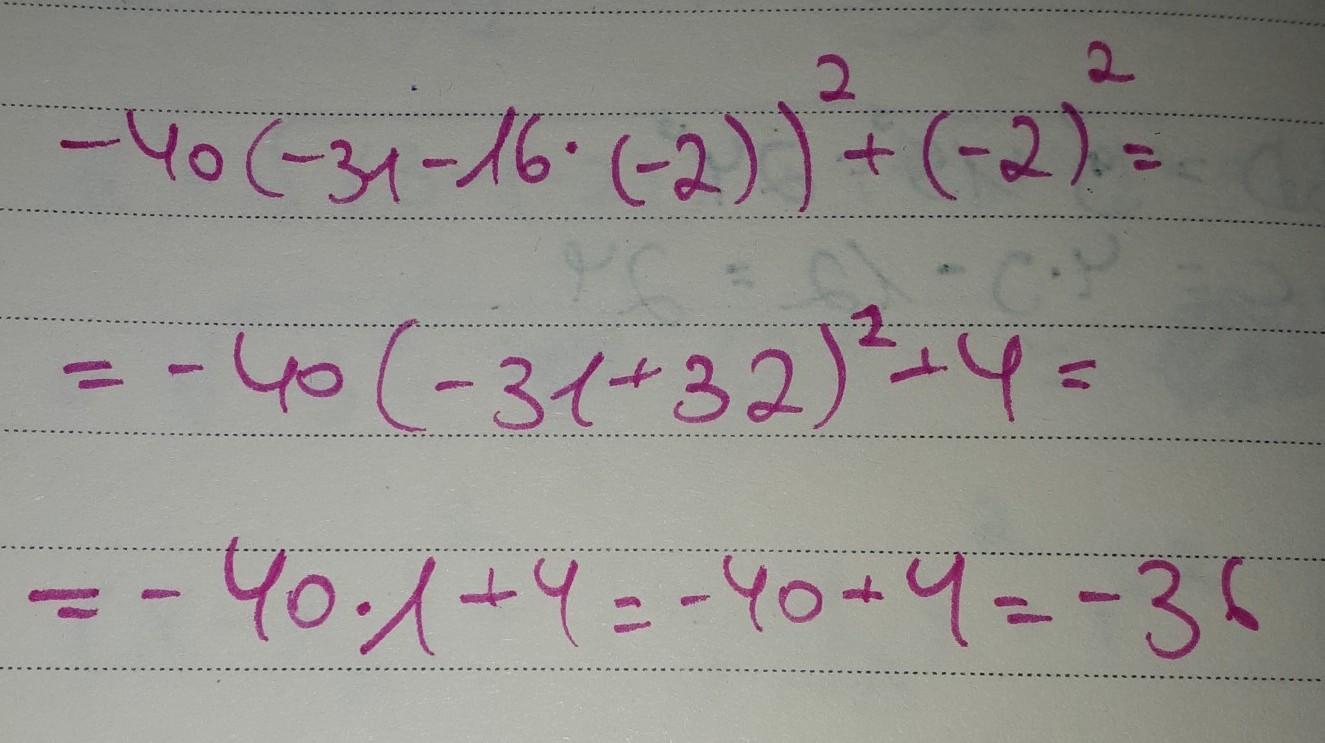 -40(-31-16·(-2))²+(-2)²=
=-40(-31+32)²+4=
=-40·1+4=-40+4=-36